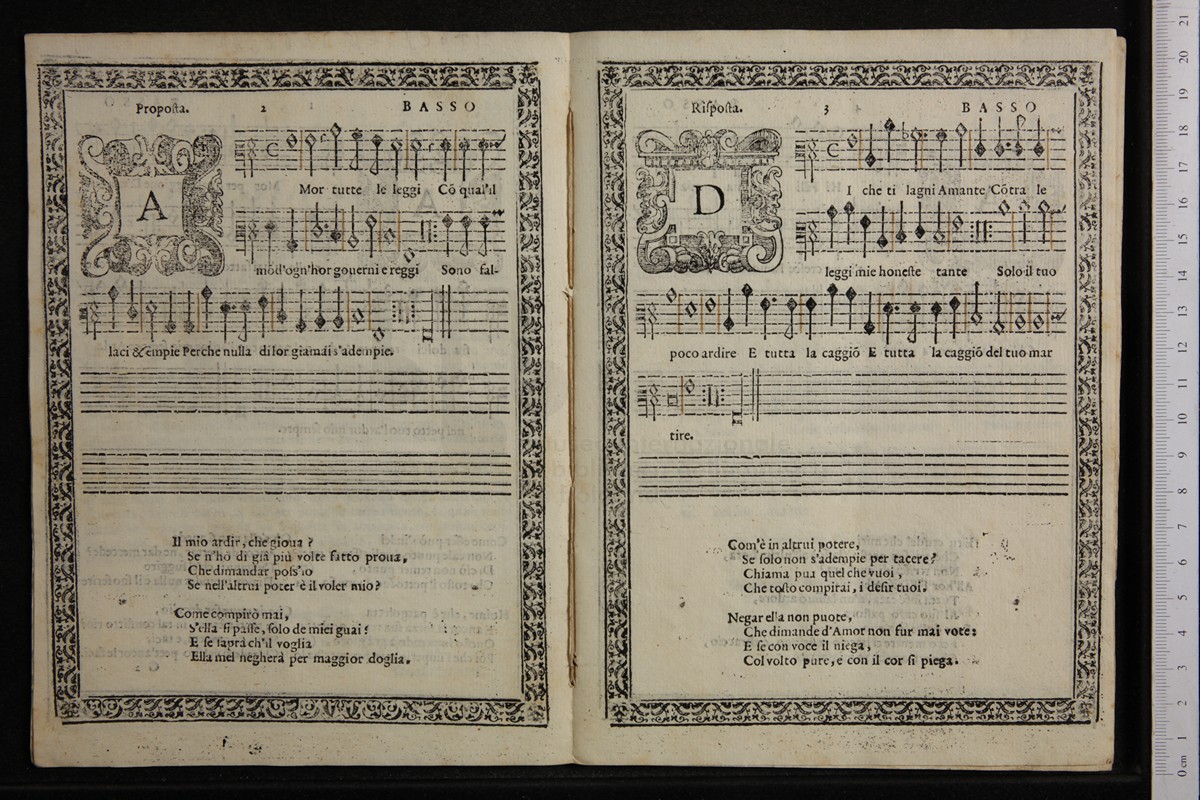 Proposta. 2 BASSO
A
Mor tutte le leggi Cō qual'il
mōd'ogn'hor gouerni e reggi Sono fal-
laci & empie Perche nulla di lor giamai s'adempie.
Il mio ardir, che gioua ?
Se n'hò di già più volte fatto proua,
Che dimandar poss'io
Se nell'altrui poter è il voler mio?
Come compirò mai,
S'ella si passe, solo de miei guai ?
E se saprà ch'il voglia
Ella mel negherà per maggior doglia.
Risposta. 3 BASSO
D
I che ti lagni Amante Cōtra le
leggi mie honeste tante Solo il tuo
poco ardire E tutta la caggiō E tutta la caggiō del tuo mar
tire.
Com'è in altrui potere,
Se solo non s'adempie per tacere?
Chiama pua quel che vuoi ,
Che tosto compirai, i desir tuoi.
Negar ella non puote,
Che dimande d'Amor non fur mai vote:
E se con voce il niega,
Col volto pure, e con il cor si piega.
0 cm 1 2 3 4 5 6 7 8 9 10 11 12 13 14 15 16 17 18 19 20 21